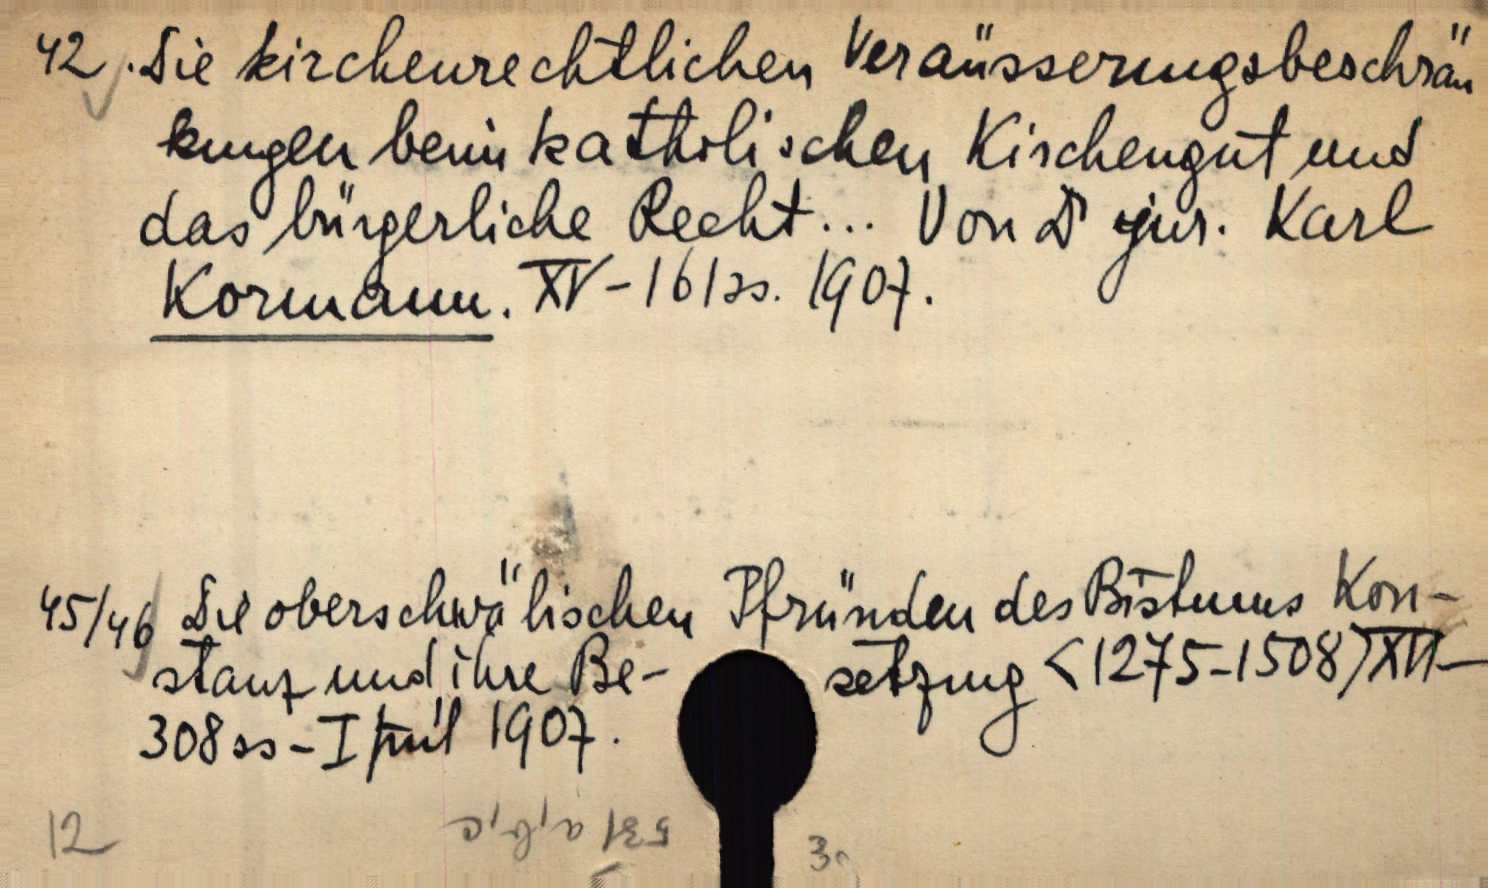 42. Die kirchenrechtlichen Veräusserungsbeschrän
kungen beim katholischen Kirchengut und
das bürgerliche Recht... Von Dr jur. Karl
Kormann. XV-161 ss. 1907.
45/46 Die oberschwäbischen Pfründen des Bistums Kon-
stanz und ihre Be- setzung (1275-1508) XII-
308 ss - I 1907.
12
531 a, b, c